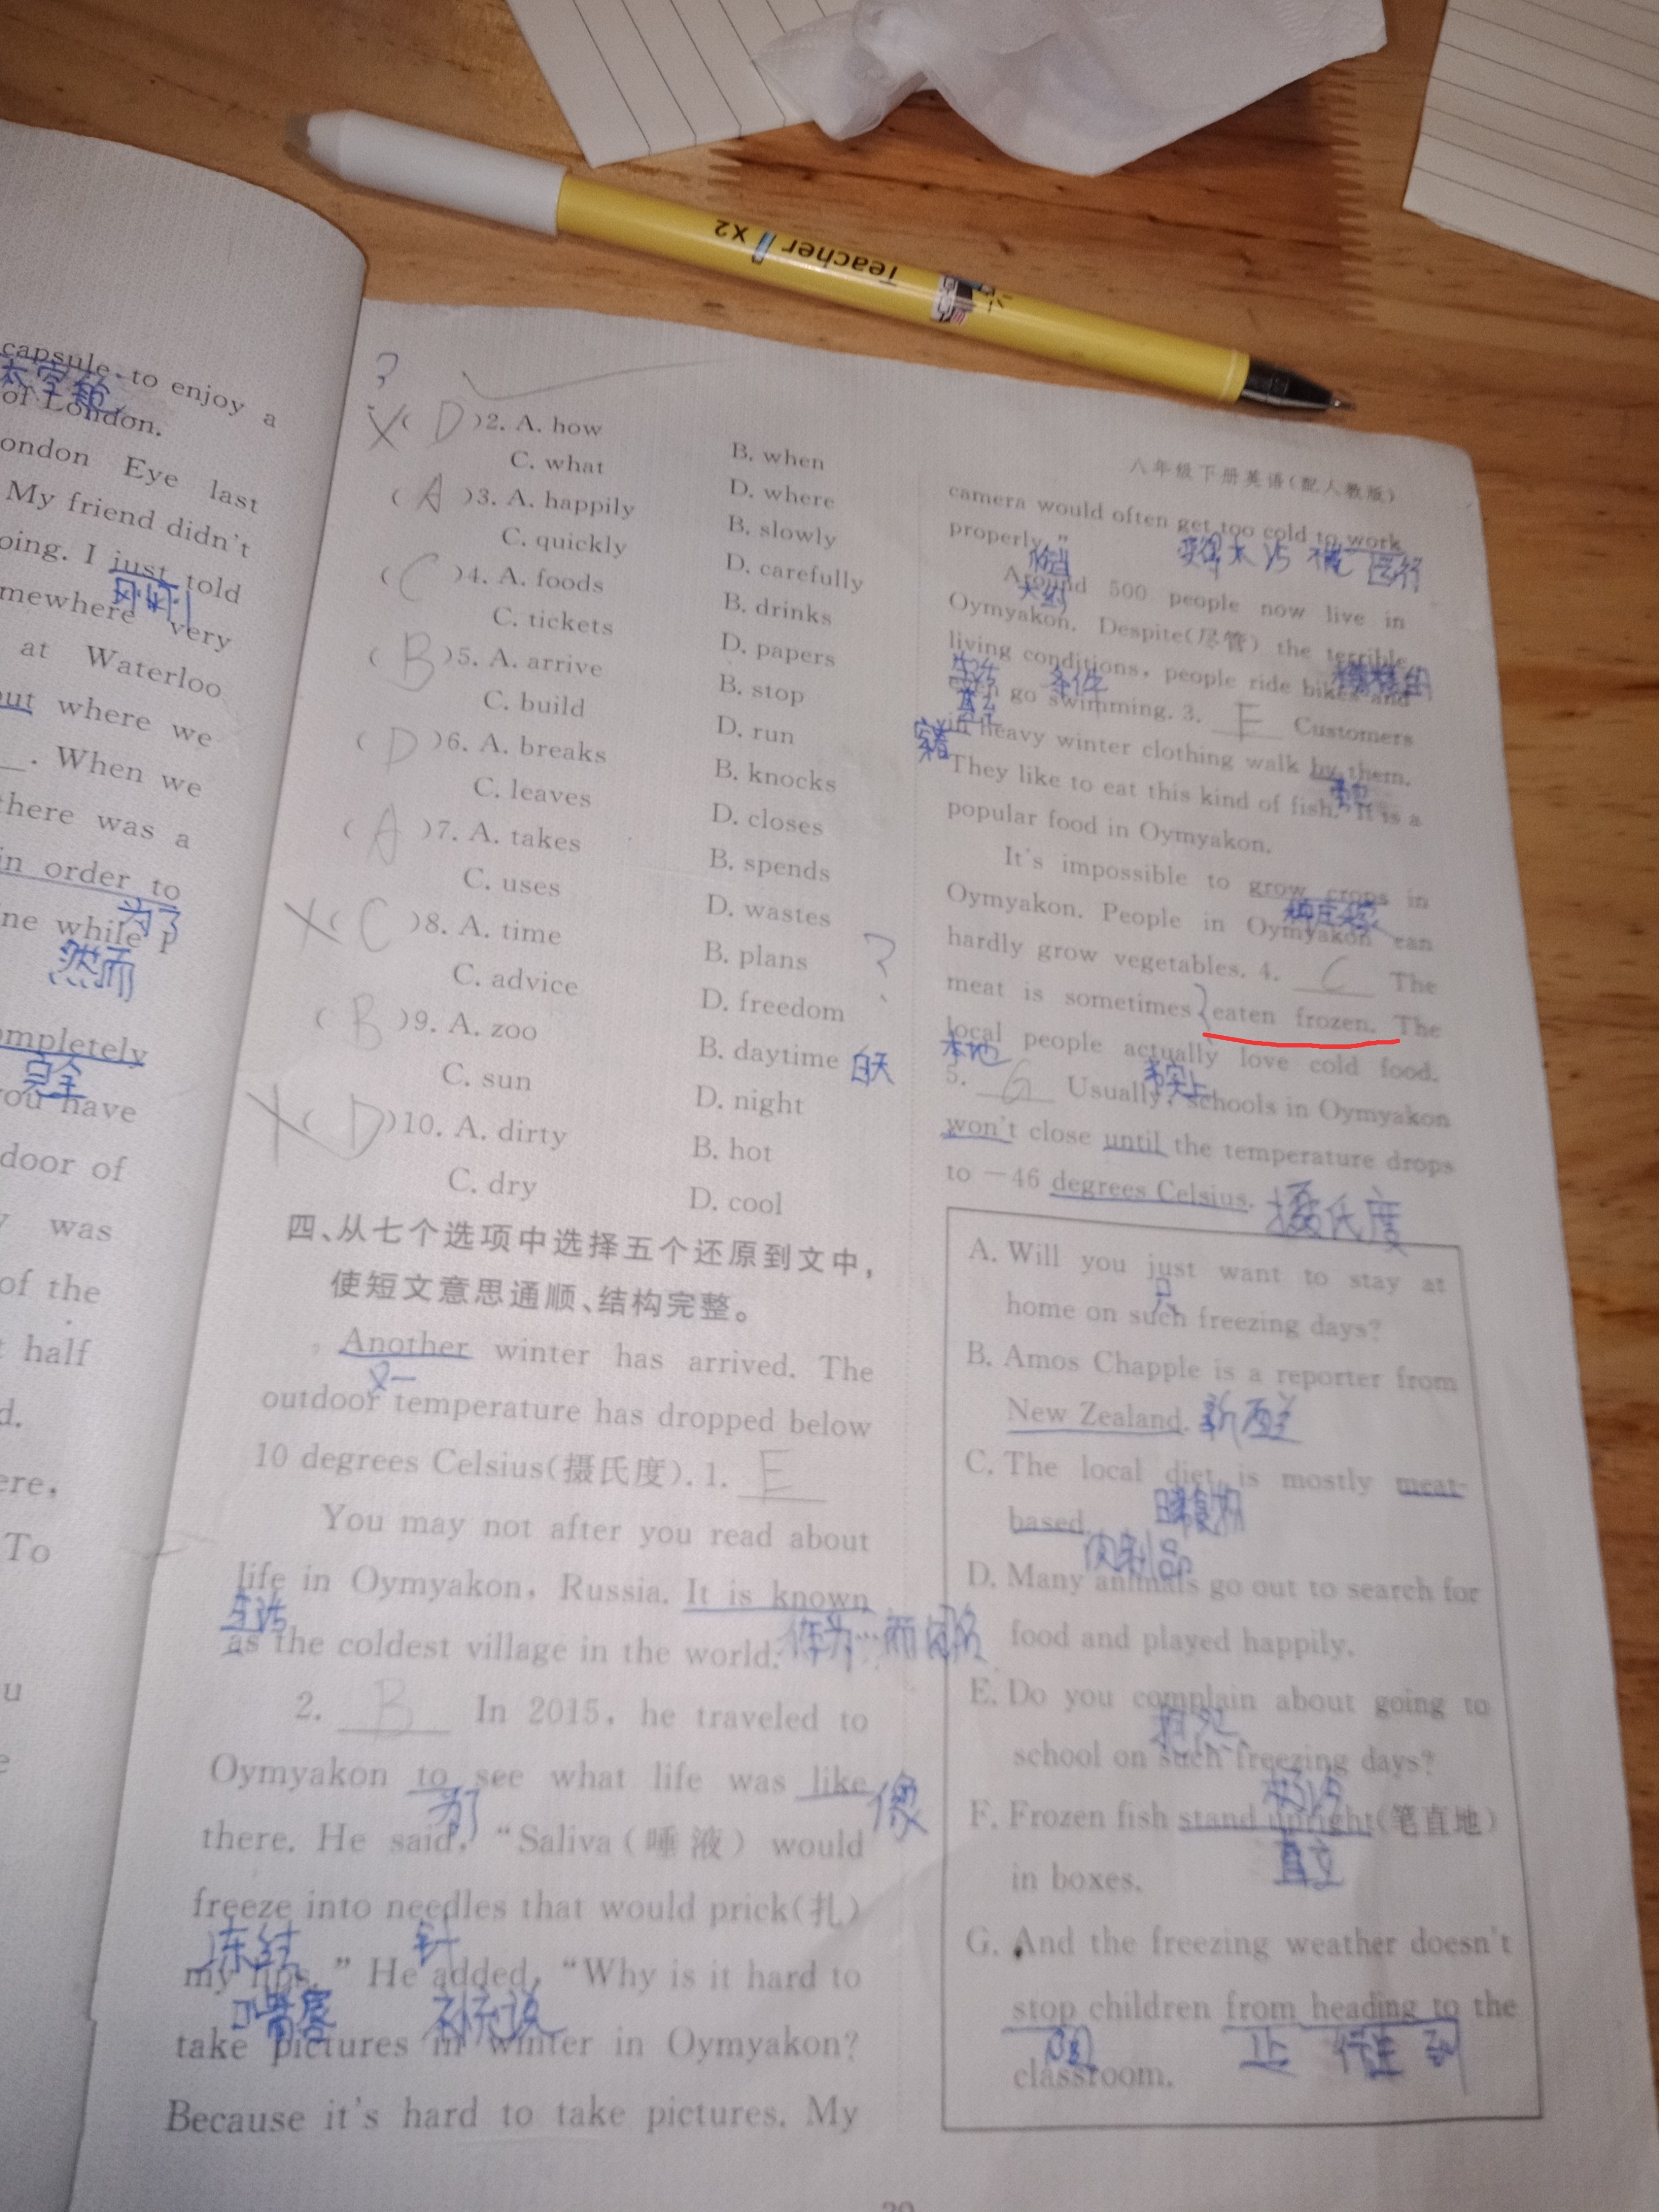 Teacher X2
capsule to enjoy a
太空舱
of London.
London Eye last
My friend didn't
oing. I just told
刚刚
mewhere very
at Waterloo
out where we
. When we
there was a
in order to
为了
ne while I
然而
completely
完全
you have
door of
was
of the
half
d.
ere,
To
u
e
?
×( D )2. A. how
B. when
C. what
D. where
( A )3. A. happily
B. slowly
C. quickly
D. carefully
( C )4. A. foods
B. drinks
C. tickets
D. papers
( B )5. A. arrive
B. stop
C. build
D. run
( D )6. A. breaks
B. knocks
C. leaves
D. closes
( A )7. A. takes
B. spends
C. uses
D. wastes
×( C )8. A. time
B. plans ?
C. advice
D. freedom
( B )9. A. zoo
B. daytime 白天
C. sun
D. night
×( D )10. A. dirty
B. hot
C. dry
D. cool
四、从七个选项中选择五个还原到文中，
使短文意思通顺、结构完整。
Another winter has arrived. The
又一
outdoor temperature has dropped below
10 degrees Celsius(摄氏度). 1. E
You may not after you read about
life in Oymyakon, Russia. It is known
生活
as the coldest village in the world. 作为…而闻名
2. B In 2015, he traveled to
Oymyakon to see what life was like 像
为了
there. He said, “Saliva(唾液) would
freeze into needles that would prick(扎)
冻结 针
my lips.” He added, “Why is it hard to
嘴唇 补充说
take pictures in winter in Oymyakon?
Because it's hard to take pictures. My
八年级下册英语(配人教版)
camera would often get too cold to work
properly.”
恰当
Around 500 people now live in
大约
Oymyakon. Despite(尽管) the terrible
living conditions, people ride bikes and
生活 条件 糟糕的
even go swimming. 3. E Customers
甚至
in heavy winter clothing walk by them.
穿着
They like to eat this kind of fish. It is a
popular food in Oymyakon.
It's impossible to grow crops in
种庄稼
Oymyakon. People in Oymyakon can
hardly grow vegetables. 4. C The
meat is sometimes eaten frozen. The
local people actually love cold food.
本地 事实上
5. G Usually, schools in Oymyakon
won't close until the temperature drops
to −46 degrees Celsius. 摄氏度
A. Will you just want to stay at
只
home on such freezing days?
B. Amos Chapple is a reporter from
New Zealand. 新西兰
C. The local diet is mostly meat-
日常食物
based.
肉制品
D. Many animals go out to search for
food and played happily.
E. Do you complain about going to
抱怨
school on such freezing days?
F. Frozen fish stand upright(笔直地)
直立
in boxes.
G. And the freezing weather doesn't
stop children from heading to the
阻 止 行往 到
classroom.